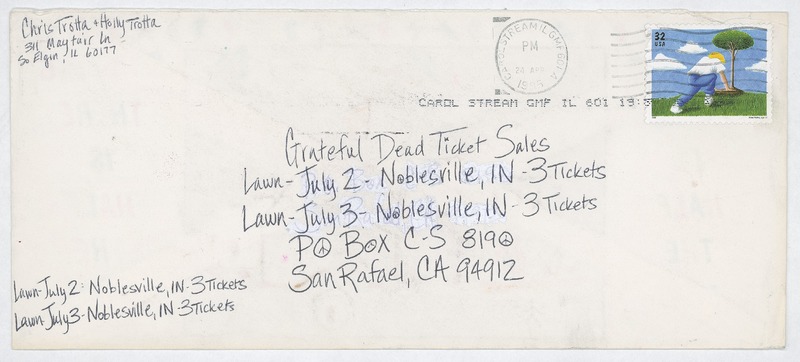 Chris Trotta + Holly Trotta
311 Mayfair Ln
So Elgin, IL 60177
CAROL STREAM IL GMF 601
PM
1995
32
USA
CAROL STREAM GMF IL 601
Grateful Dead Ticket Sales
Lawn - July 2 - Noblesville, IN - 3 Tickets
Lawn - July 3 - Noblesville, IN - 3 Tickets
PO Box C-S 8190
San Rafael, CA 94912
Lawn - July 2: Noblesville, IN - 3 Tickets
Lawn - July 3 - Noblesville, IN - 3 Tickets